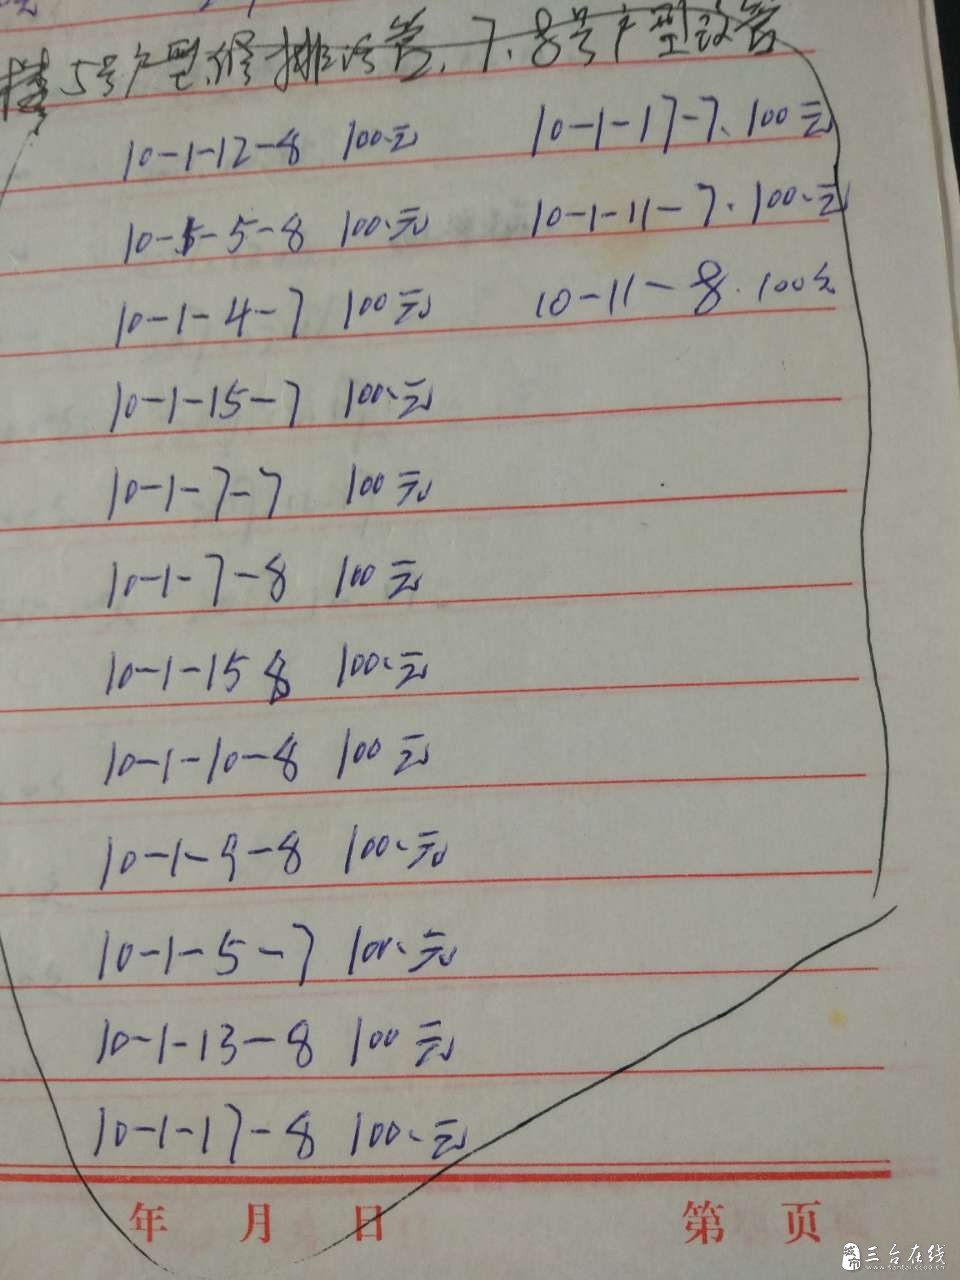 5号户型,修排污管.7.8号户型改管
10-1-12-8 100.元 10-1-17-7. 100元
10-1-5-8 100.元 10-1-11-7. 100.元
10-1-4-7 100元 10-11-8. 100元
10-1-15-7 100.元
10-1-7-7 100元
10-1-7-8 100元
10-1-15 8 100.元
10-1-10-8 100元
10-1-9-8 100.元
10-1-5-7 100.元
10-1-13-8 100元
10-1-17-8 100.元
年 月 日 第 页
城市 三台在线